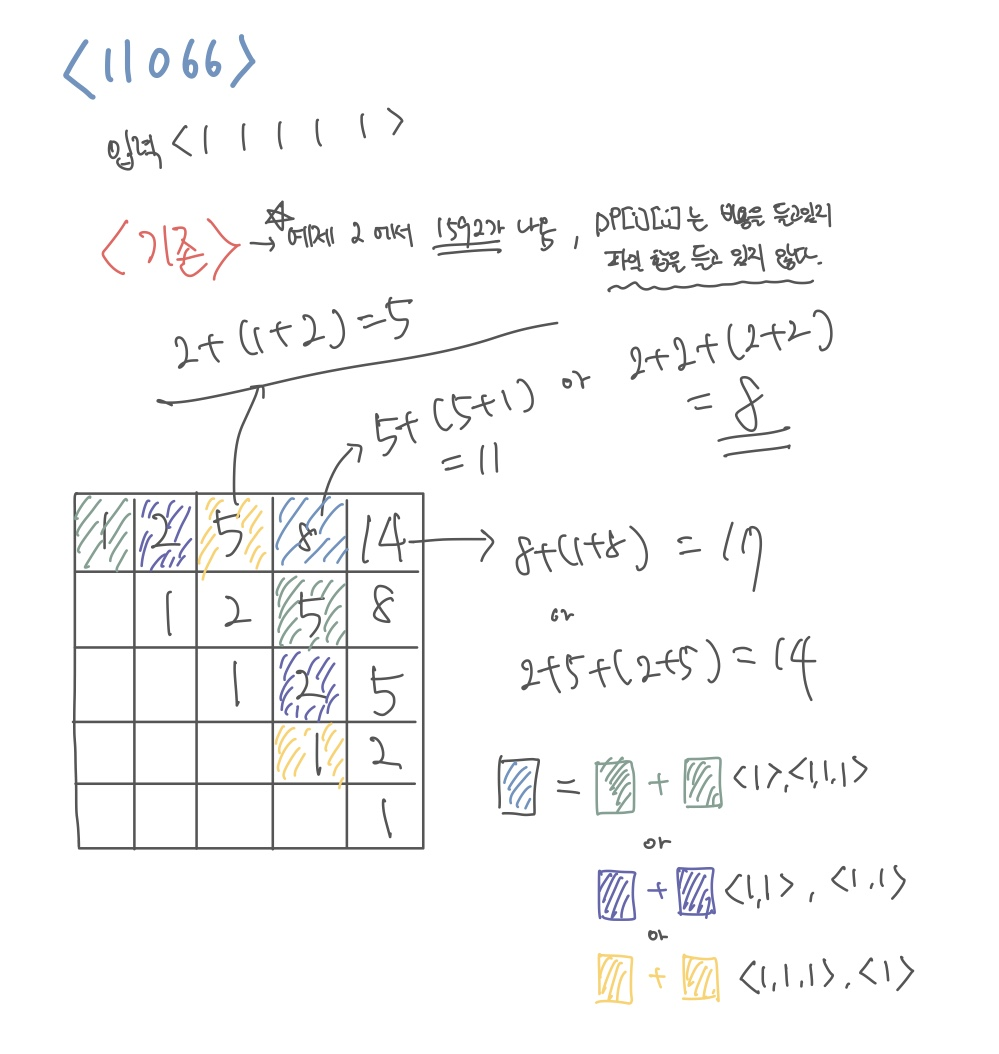 <11066>
입력 <1 1 1 1 1>
<기존> → ☆ 예제 2 에서 1592가 나옴, DP[i][j]는 비용을 들고있지
파일 합을 들고 있지 않다.
2+(1+2)=5
5+(5+1)
= 11
or
2+2+(2+2)
= 8
1 2 5 8 14
1 2 5 8
1 2 5
1 2
1
8+(1+8) = 17
or
2+5+(2+5) = 14
= + <1>,<1,1,1>
or
+ <1,1>, <1,1>
or
+ <1,1,1>, <1>